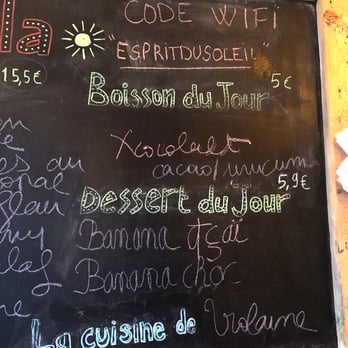 la
CODE WIFI
"ESPRITDUSOLEIL"
15,5€
Boisson du Jour
5€
Xocolatl
cacao/urucum
5,9€
au
Dessert du Jour
Banana açaï
Banana choc
La cuisine de Violaine